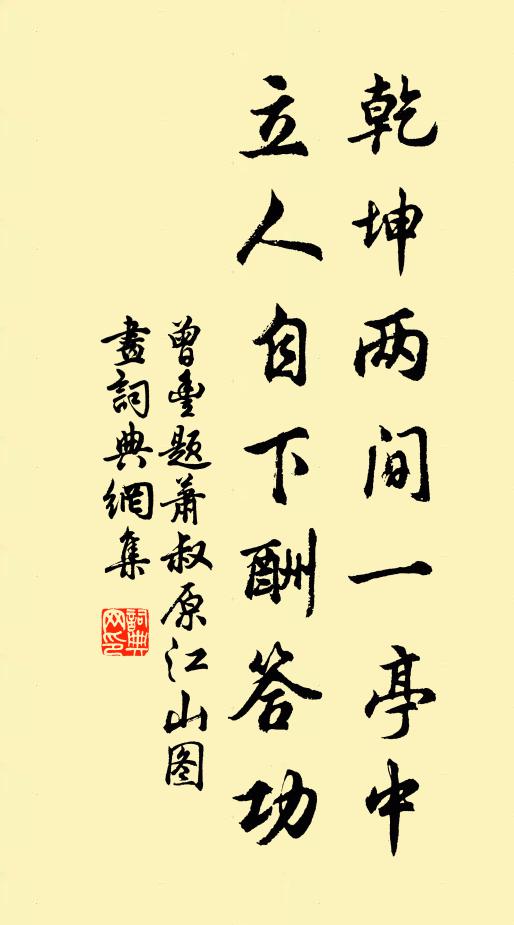 乾坤两间一亭中
立人自下酬答功
曾豊题萧叔原江山图
畫詞典網集
詞典
网印